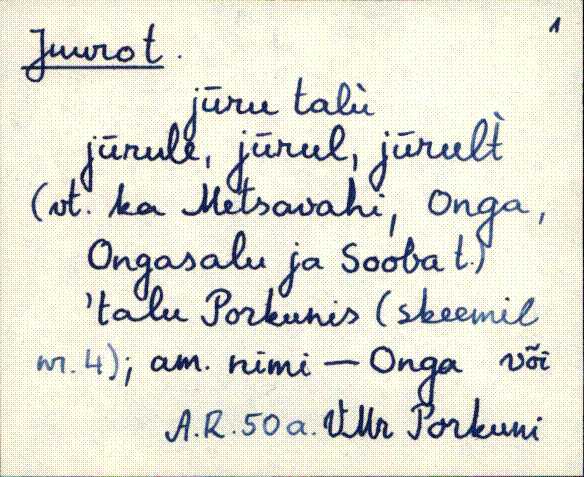 1
Juuro t.
jūru talù
jūrule, jūrul, jūrul̀t
(vt. ka Metsavahi, Onga,
Ongasalu ja Sooba t.)
'talu Porkunis (skeemil
nr. 4); am. nimi — Onga või
A.R. 50 a. VMr Porkuni